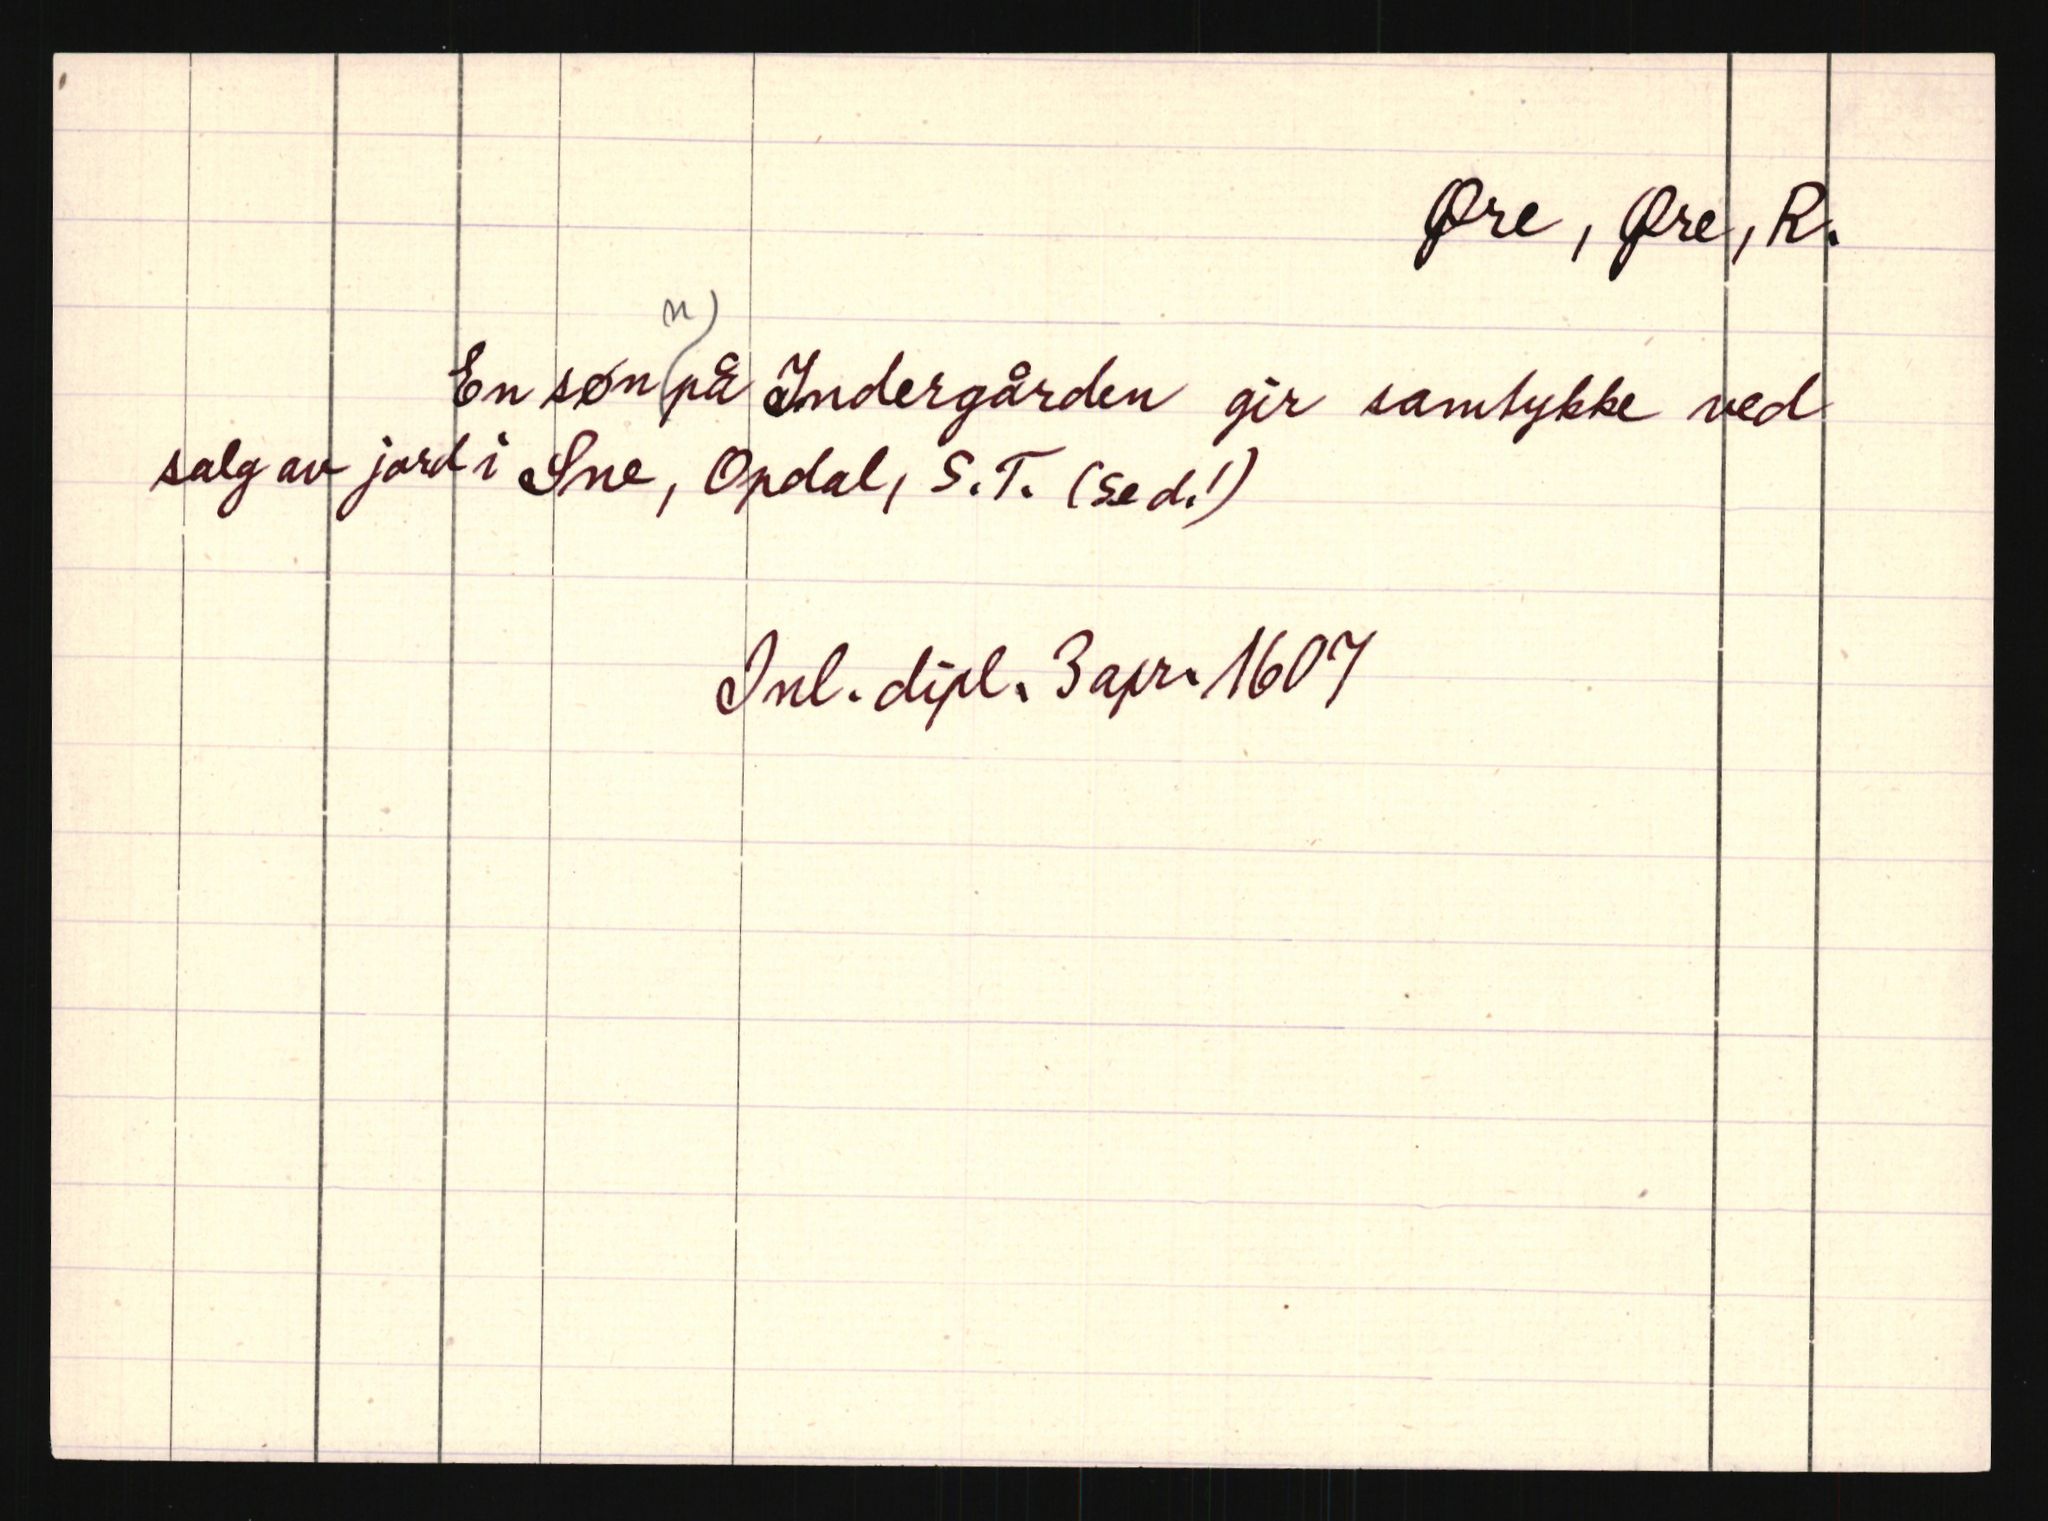 Øre, Øre, R.
n)
En søn på Indergården gir samtykke ved
salg av jord i Sne, Opdal, S.T. (Se d.!)
Inl. dipl. 3 apr. 1607